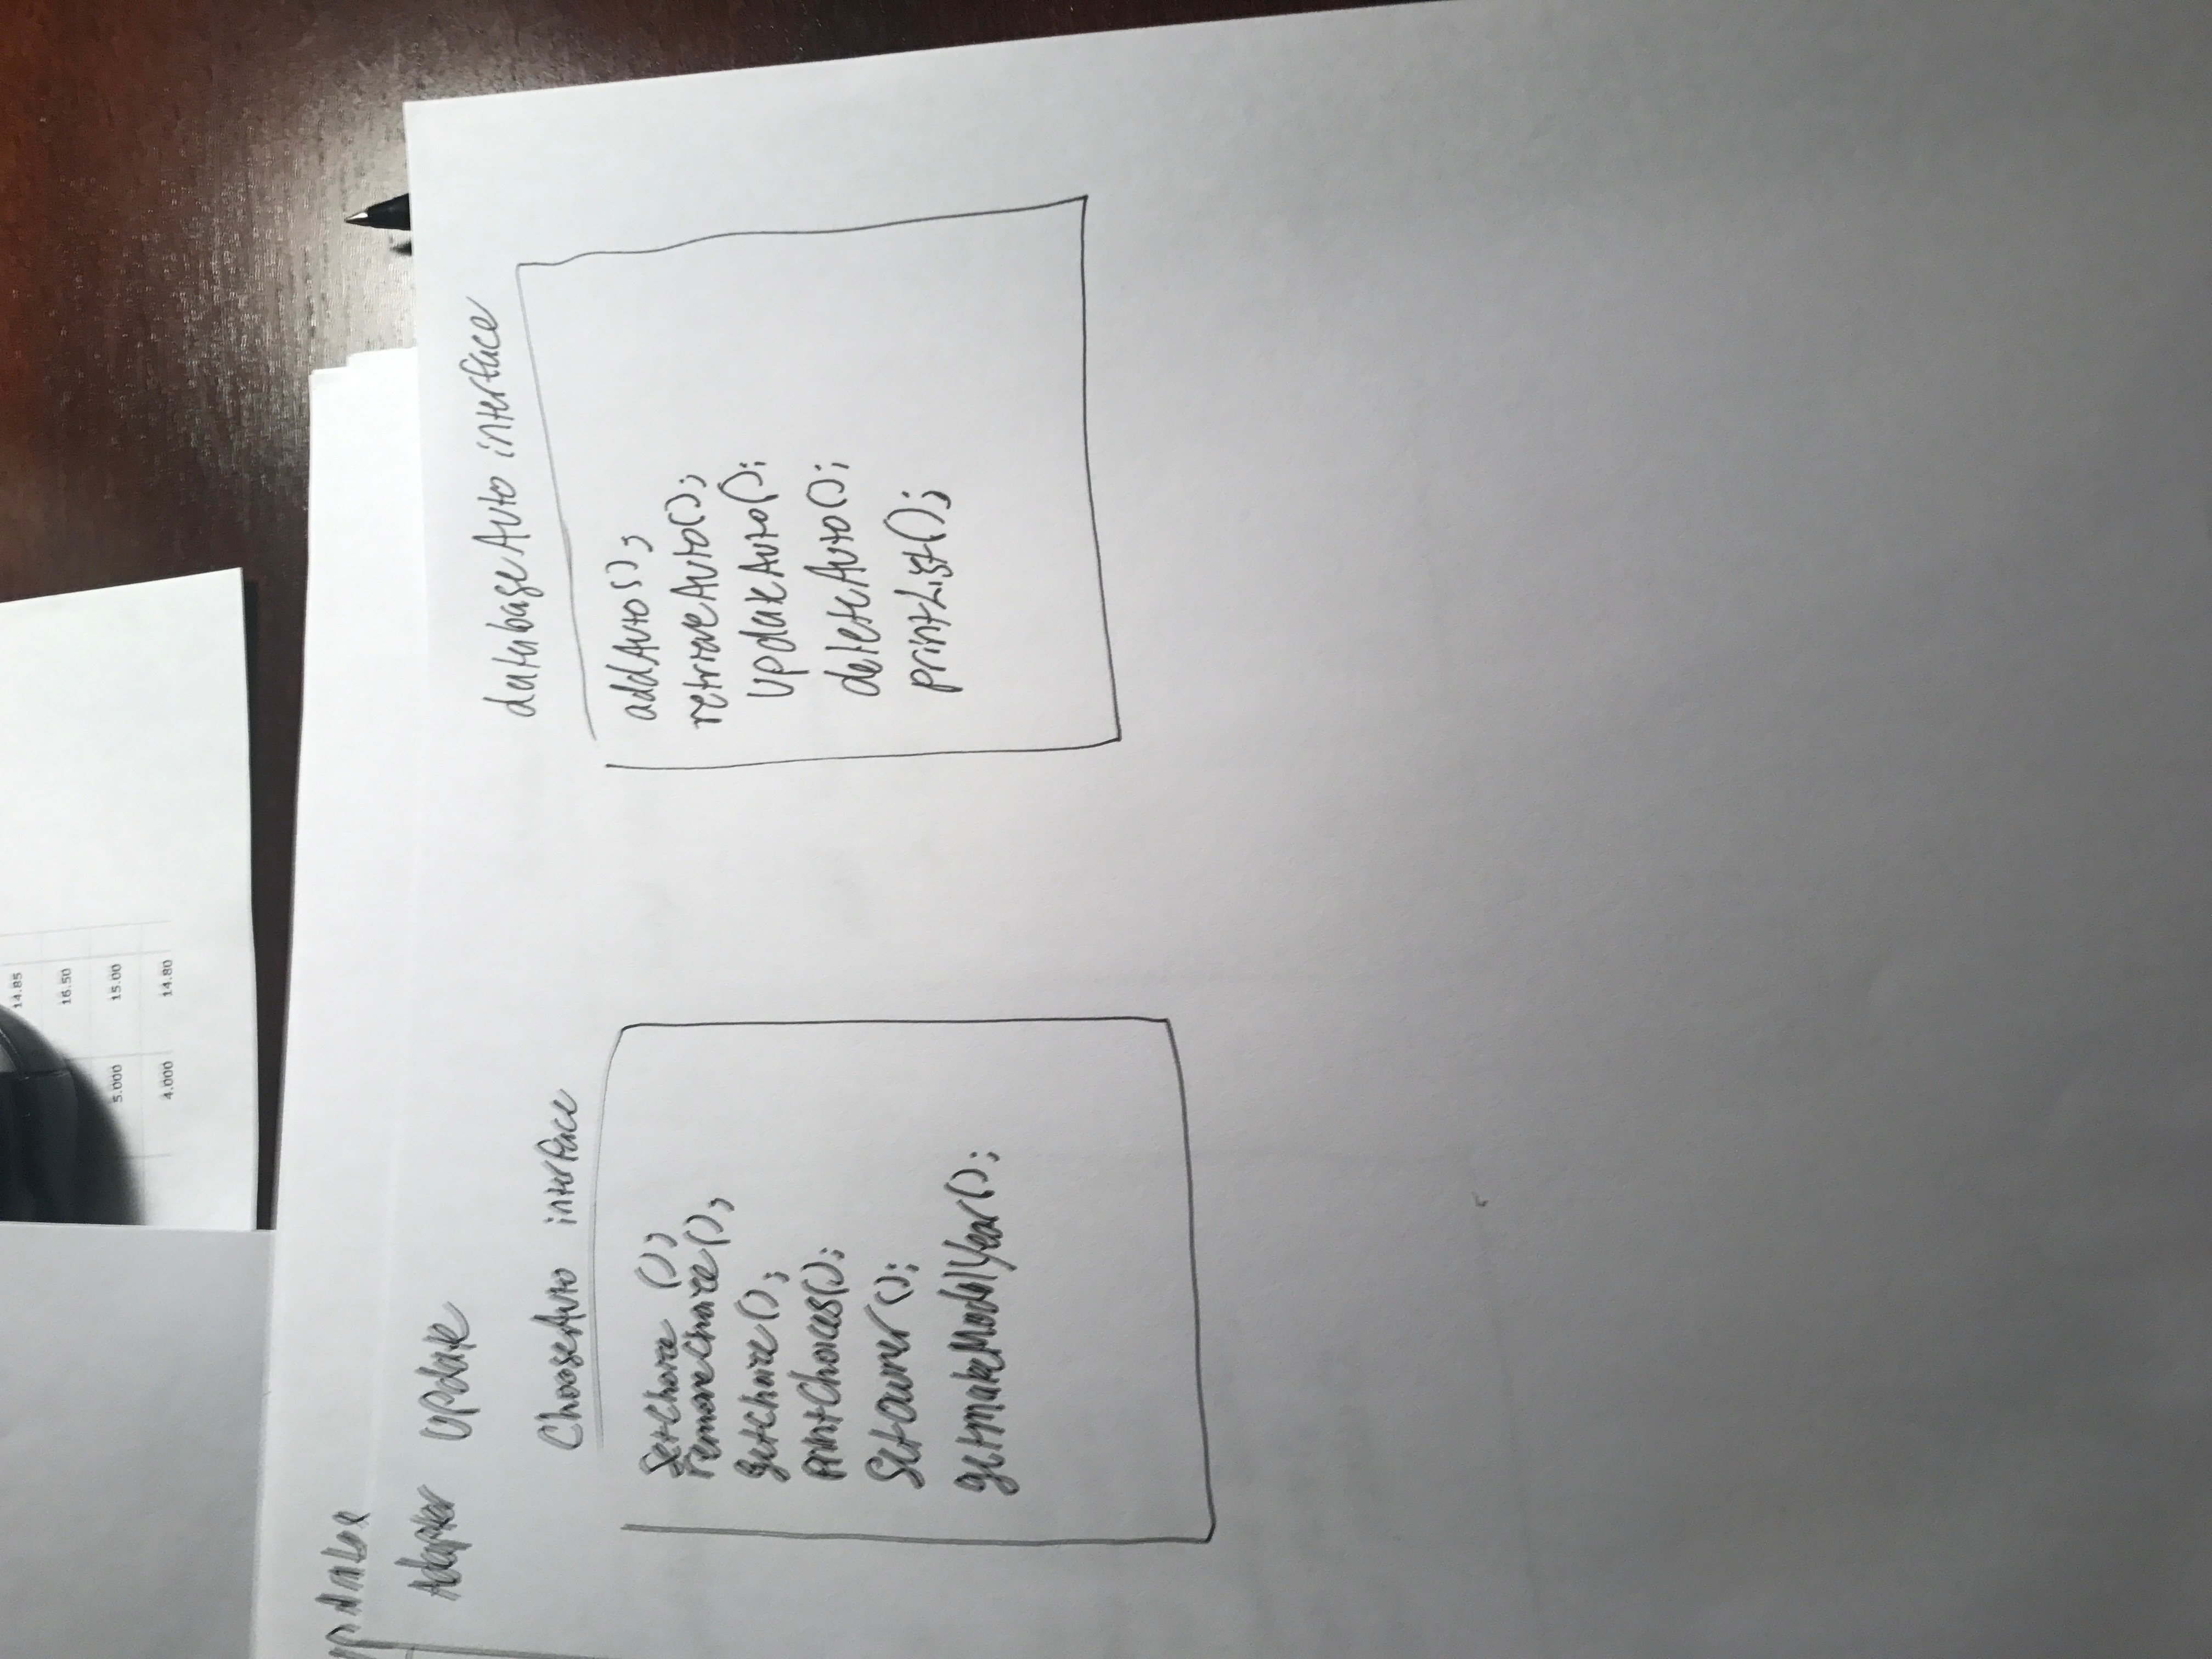 14.85
16.50
5.000 15.00
4.000 14.80
Adapter Update
ChooseAuto interface
SetChoice ();
removeChoice();
getChoice();
printChoices();
SetOwner();
getmakeModelYear();
databaseAuto interface
addAuto();
retrieveAuto();
UpdateAuto();
deleteAuto();
printList();